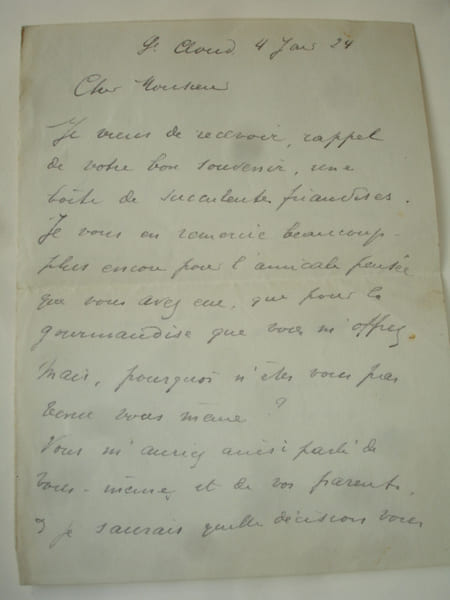 St Cloud. 4 Janv 24
Cher Monsieur
Je viens de recevoir, rappel
de votre bon souvenir, une
boîte de succulentes friandises.
Je vous en remercie beaucoup -
plus encore pour l'amicale pensée
que vous avez eue, que pour la
gourmandise que vous m'offrez
Mais, pourquoi n'êtes vous pas
venu vous même ?
Vous m'auriez ainsi parlé de
vous-même, et de vos parents,
et je saurais quelle décision vous